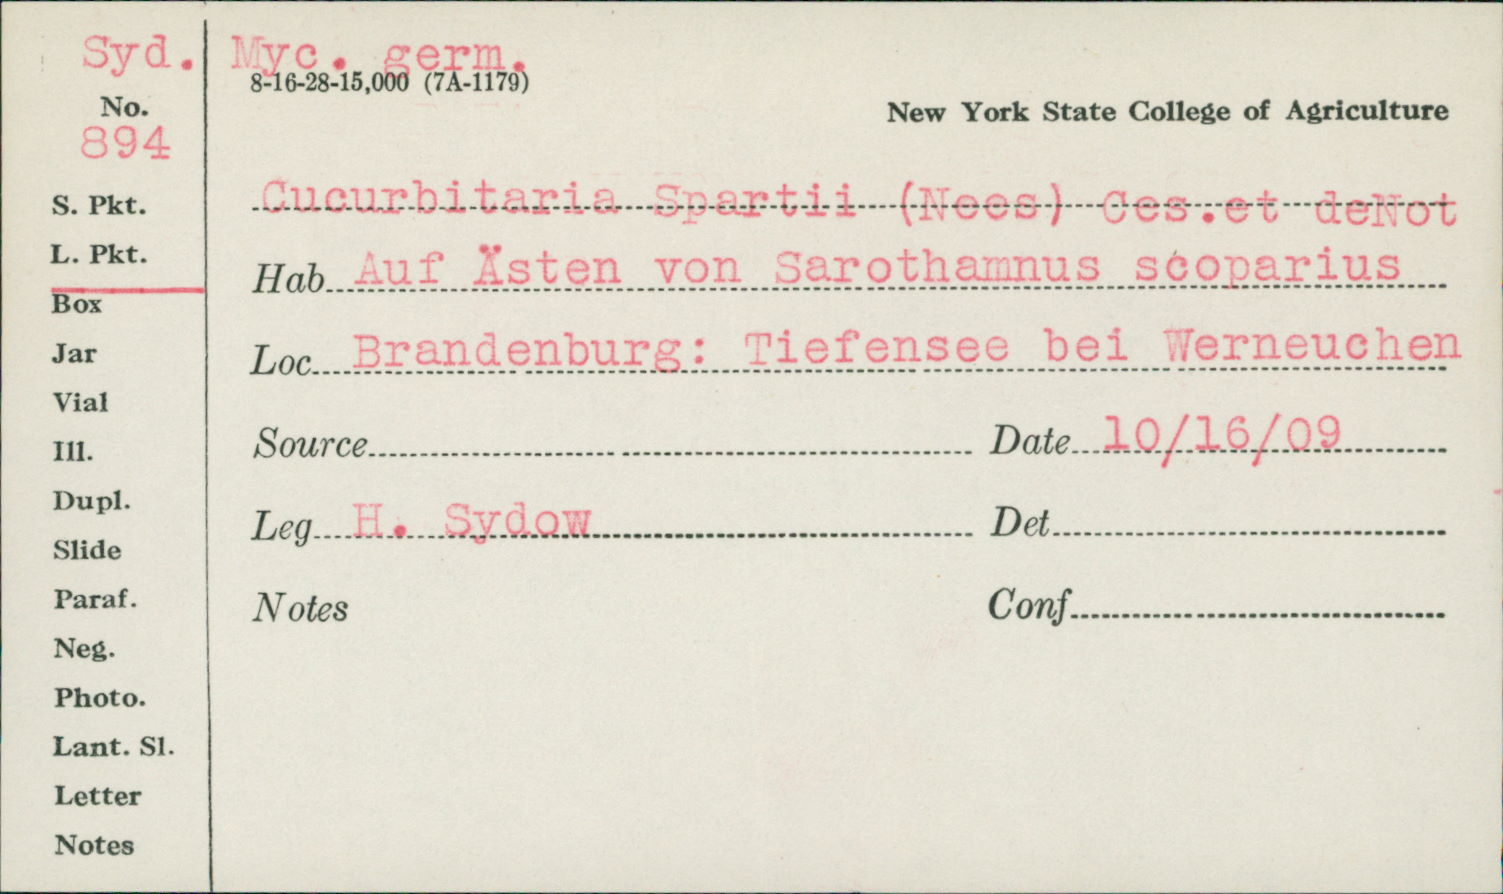 Syd. Myc. germ.
8-16-28-15,000 (7A-1179)
No.
894
New York State College of Agriculture
S. Pkt.
L. Pkt.
Box
Jar
Vial
Ill.
Dupl.
Slide
Paraf.
Neg.
Photo.
Lant. Sl.
Letter
Notes
Cucurbitaria Spartii (Nees) Ces.et deNot
Hab Auf Ästen von Sarothamnus scoparius
Loc Brandenburg: Tiefensee bei Werneuchen
Source Date 10/16/09
Leg H. Sydow Det
Notes Conf